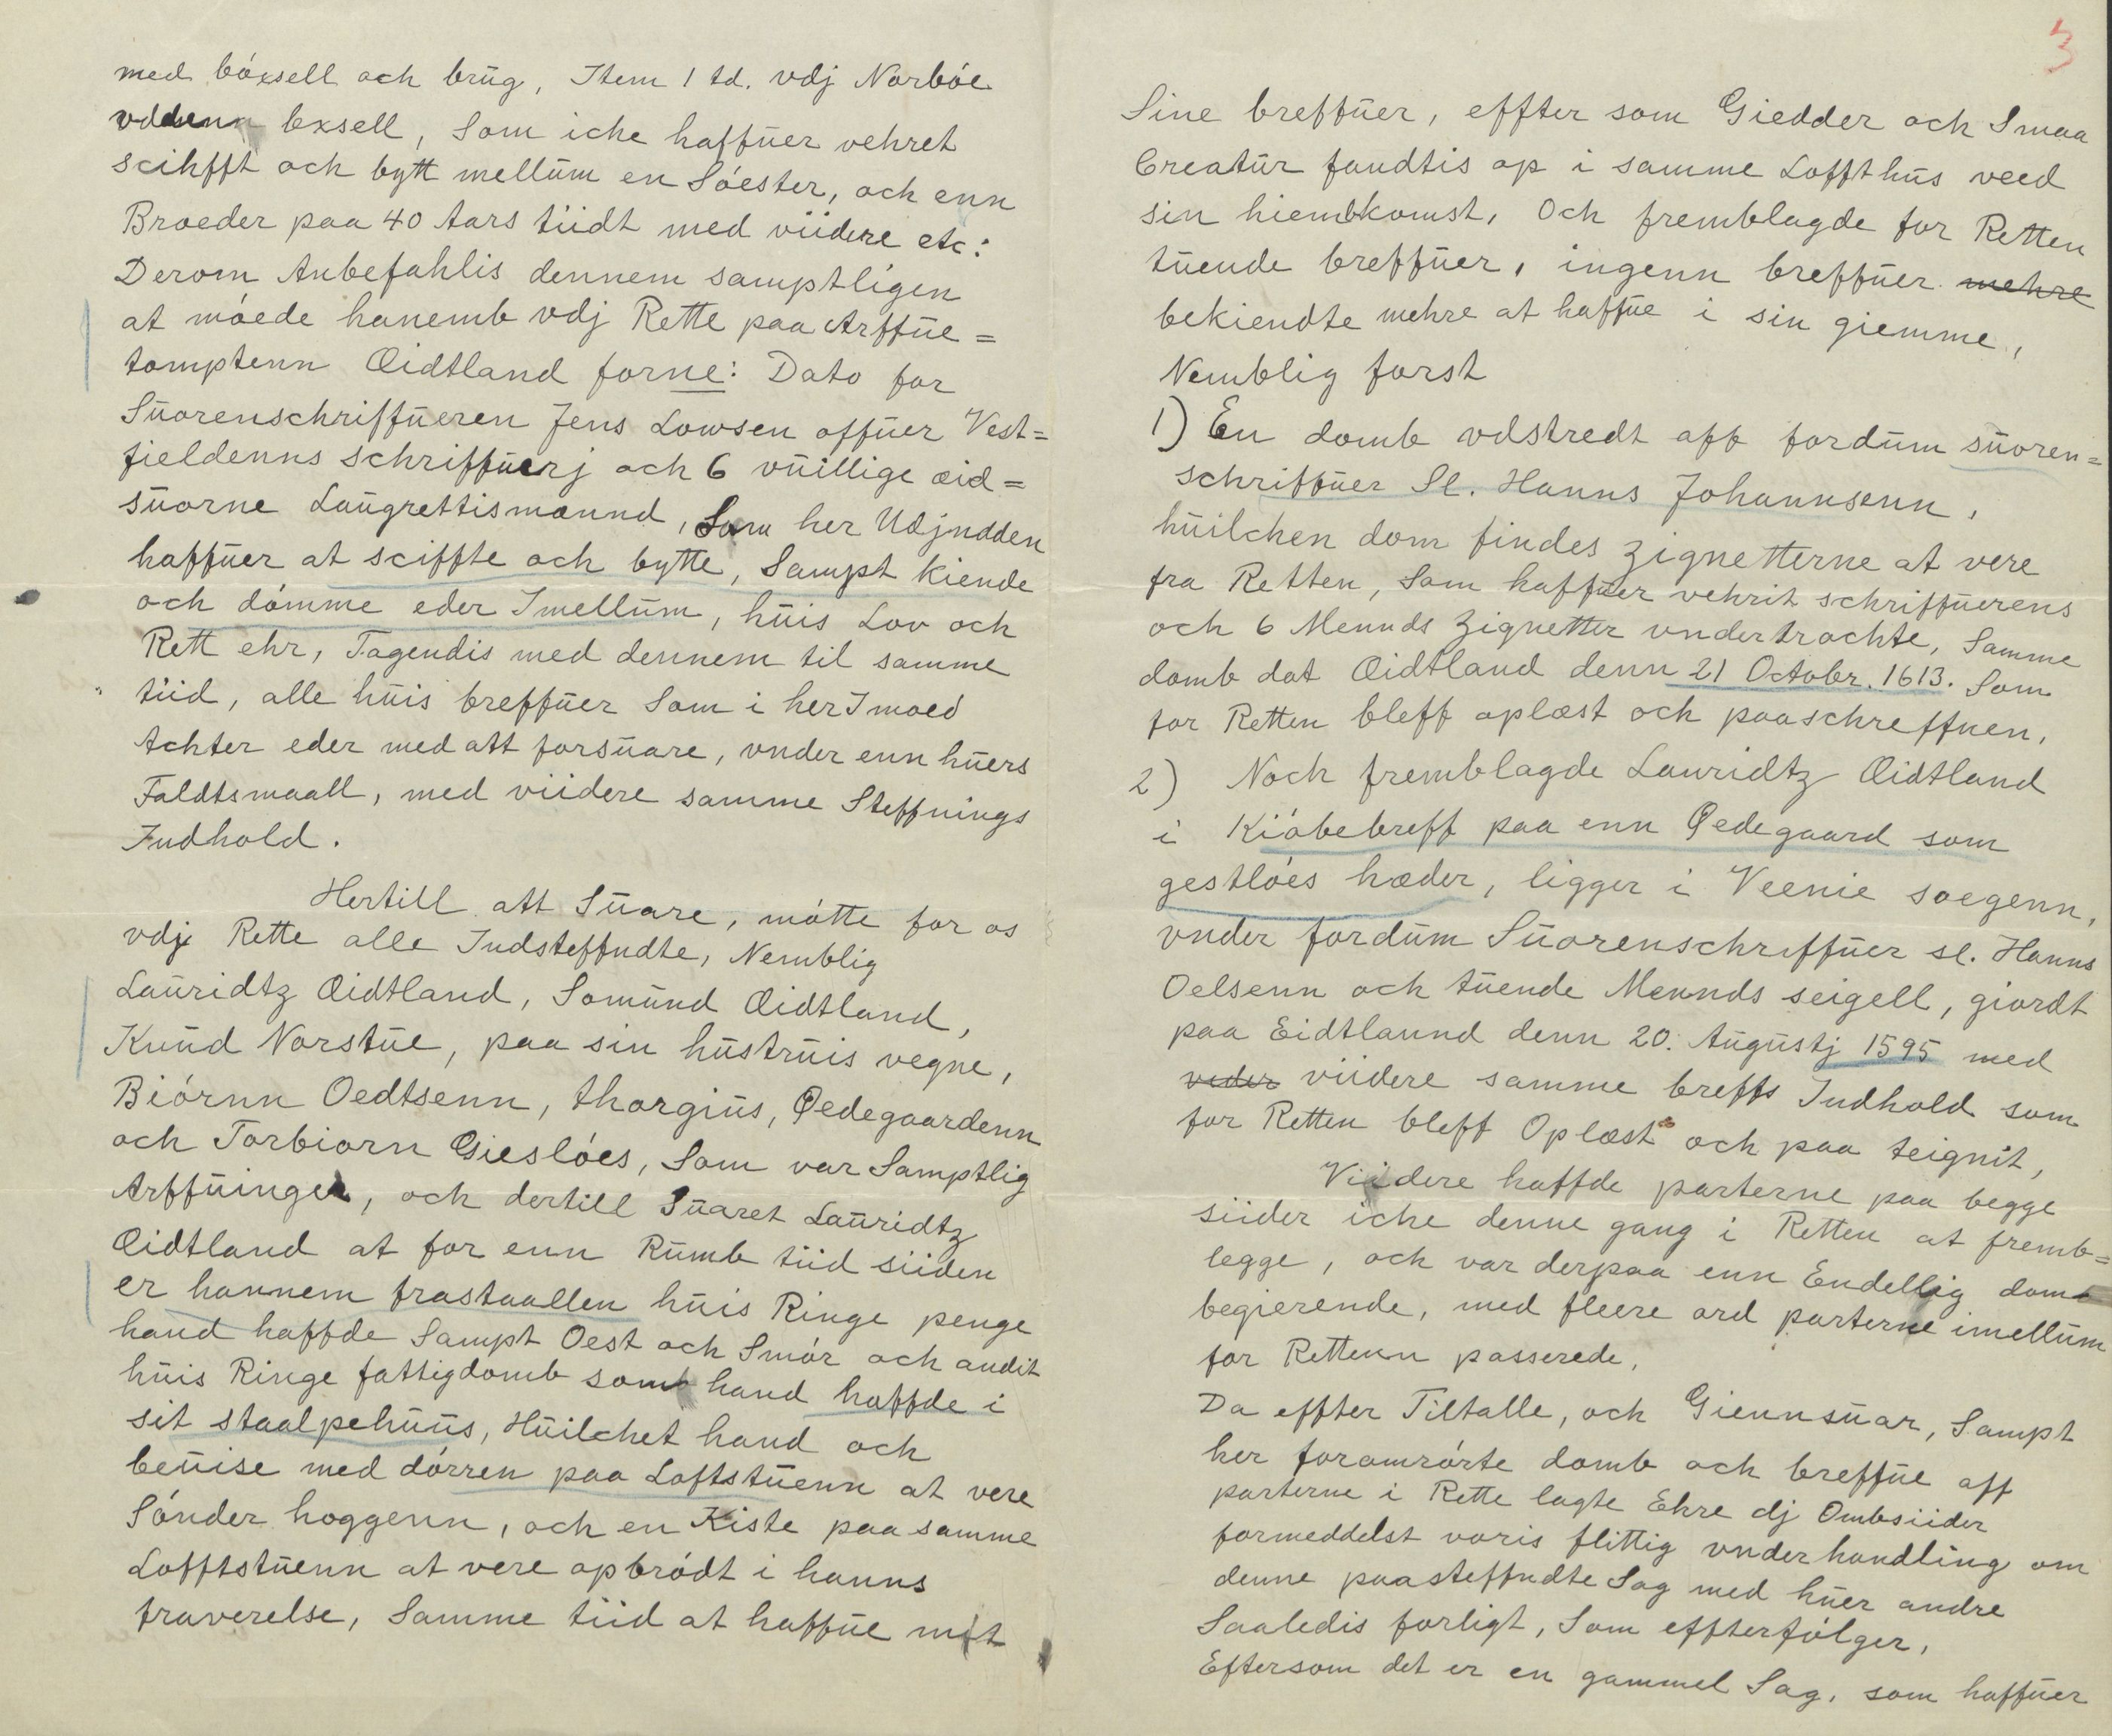 med bóxsell och brüg, Item 1 td. vdj Narbóe
vddenn bxsell, Som iche haffüer vehret
scihfft och bytt mellüm en Sóester, och enn
Broeder paa 40 Aars tiidt med viidere etc:
Derom Anbefahlis dennem samptligen
at móede hanemb vdj Rette paa Arffüe=
tomptenn Øidtland forne: Dato for
Süorenschriffüeren Jens Lowsen offüer Vest=
fieldenns schriffüerj och 6 vüillige æid=
süorne Laugrettismænnd, Som her Udjndden
haffüer at sciffte och bytte, Sampt kiende
och dómme eder Imellüm, hüis Lov och
Rett ehr, Tagendis med dennem til samme
tiid, alle hüis breffüer Som i her Imoed
Achter eder med att forsüare, vnder enn hüers
Faldtsmaall, med viidere samme Steffnings
Indhold.
Hertill att Süare, mótte for os
vdj Rette alle Indsteffndte, Nemblig
Lauridtz Øidtland, Somünd Øidtland,
Knüd Norstüe, paa sin hüstrüis vegne,
Biórnn Oedtsenn, thorgiüs, Qedegaardenn
och Torbiorn Giesloes, Som var Samptlig
Arffüinger, och dertill Süaret Laüridtz
Øidtland at for enn Rümb tiid siiden
er hannem frastaallen hüis Ringe penge
hand haffde Sampt Oest och Smór och andit
hüis Ringe fattigdomb som hand haffde i
sit staalpehüüs, Hüilchet hand och
beüise med dórren paa Loftstüenn at vere
Sónder hoggenn, och en Kiste paa samme
Lofftstüenn at vere opbródt i hanns
fraverelse, Samme tiid at haffüe mit
3
Sine breffüer, effter som Giedder och Smaa
Creatür fandtis op i samme Loffthüs veed
sin hiembkomst, Och fremblagde for Retten
tüende breffüer, ingenn breffüer mehre
bekiendte mehre at haffüe i sin giemme,
Nemblig forst
1) En domb vdstredt aff fordüm süoren=
schriffüer Sl. Hanns Johannsenn,
hüilchen dom findes zignetterne at vere
fra Retten, Som haffüer vehrit schriffüerens
och 6 Mennds Zignetter vndertrochte, Samme
domb dat Øidtland denn 21 Octobr. 1613. Som
for Retten bleff oplæst och paaschreffuen,
2) Noch fremblagde Lauridtz Øidtland
i Kióbebreff paa enn Qedegaard som
gestlóes hæder, ligger i Veenie soegenn,
vnder fordüm Süorenschriffüer sl. Hanns
Oelsenn och tüende Mennds seigell, giordt
paa Eidtlannd denn 20. Augüstj 1595 med
veder viidere samme breffs Indhold som
for Retten bleff Oplæst och paa teignit,
Viidere haffde parterne paa begge
siider iche denne gang i Retten at fremb=
legge, och var derpaa enn Endellig domb
begierende, med fleere ord parterne imellüm
for Rettenn passerede,
Da effter Tiltalle, och Giennsüar, Sampt
her foramrórte domb och breffüe aff
parterne i Rette lagte Ehre dj Ombsiider
formeddelst voris flittig vnderhandling om
denne paasteffndte Sag med hüer andre
Saaledis forligt, Som effterfólger,
Eftersom det er en gammel Sag, som haffüer